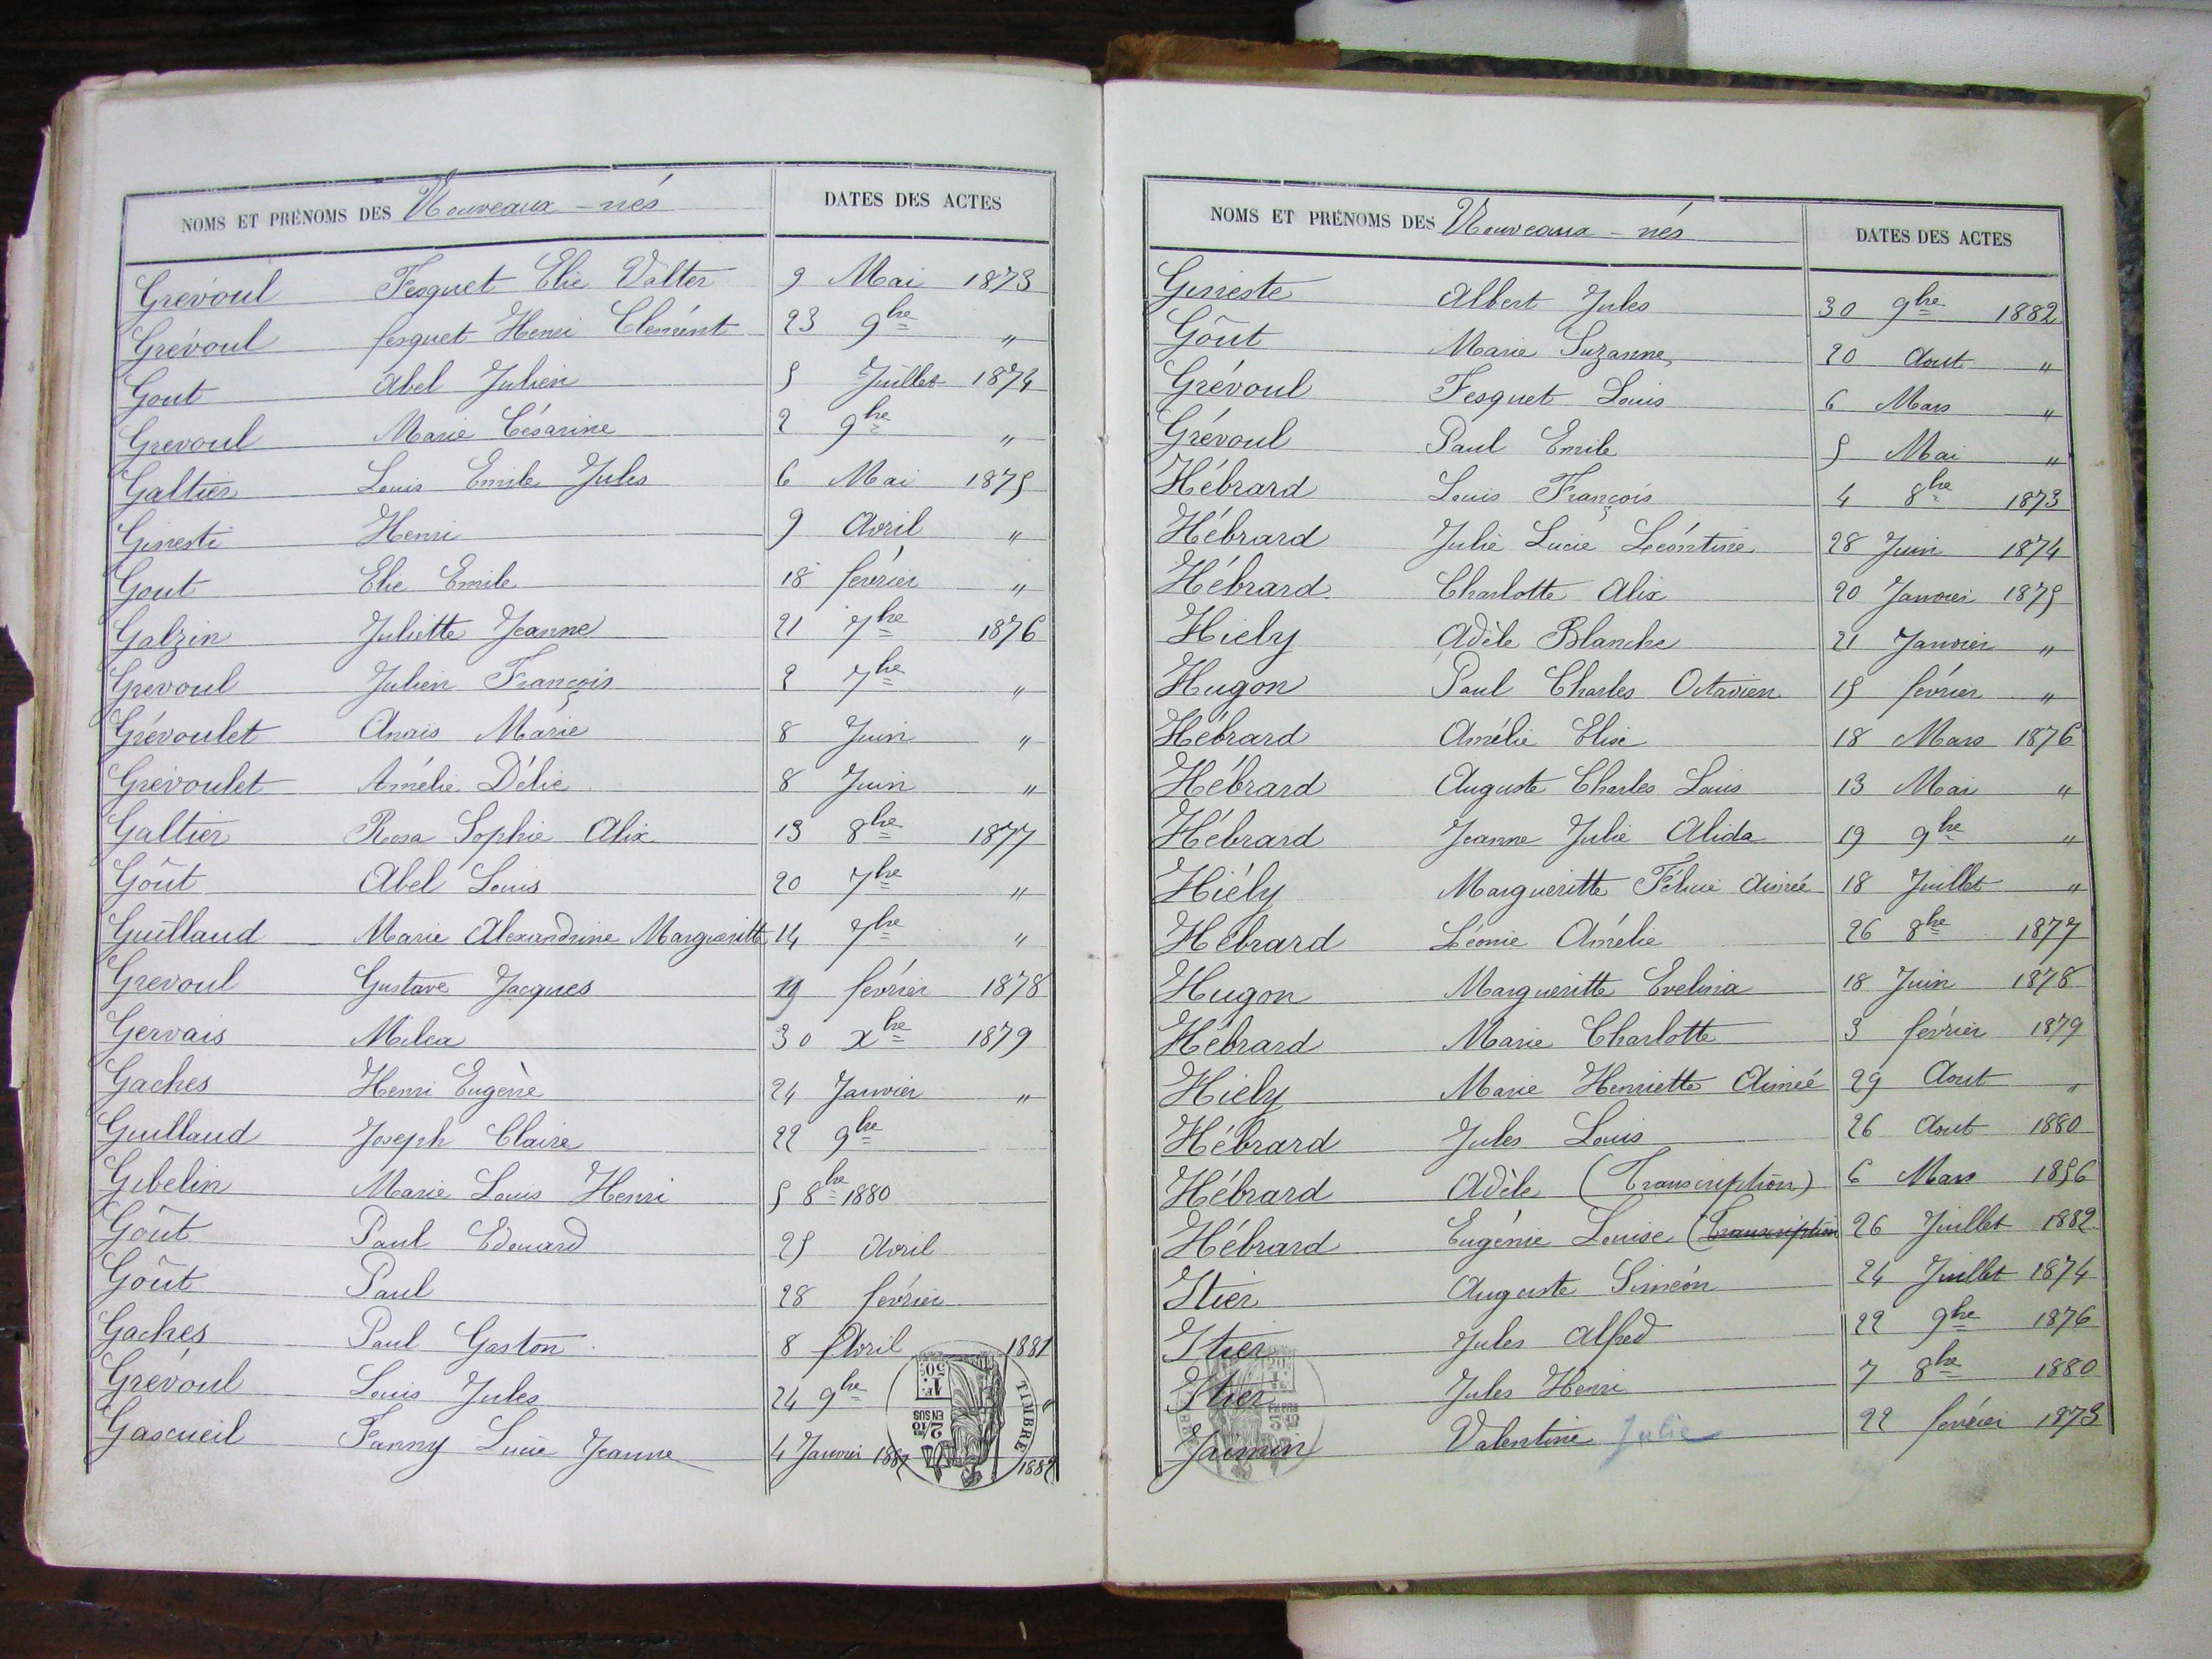 NOMS ET PRÉNOMS DES Nouveaux-nés DATES DES ACTES
Grévoul Fesquet Elie Valter 9 Mai 1873
Grévoul fesquet Henri Clemént 23 9bre "
Gout Abel Julien 5 Juillet 1874
Grevoul Marie Césarine 2 9bre "
Galtier Louis Emile Jules 6 Mai 1875
Ginesti Henri 9 Avril "
Gout Elie Emile 18 février "
Galzin Juliette Jeanne 21 7bre 1876
Grevoul Julien François 2 7bre "
Grévoulet Anais Marie 8 Juin "
Grévoulet Amélie Délie 8 Juin "
Galtier Rosa Sophie Alix 13 8bre 1877
Goût Abel Louis 20 7bre "
Guillaud Marie Alexandrine Margueritte 14 7bre "
Grevoul Gustave Jacques 19 février 1878
Gervais Milca 30 xbre 1879
Gaches Henri Eugène 24 Janvier "
Guillaud Joseph Claire 22 9bre
Gibelin Marie Louis Henri 5 8bre 1880
Goût Paul Edouard 25 Avril
Goût Paul 28 février
Gaches Paul Gaston 8 Avril 1881
Grévoul Louis Jules 24 9bre "
Gascueil Fanny Lucie Jeanne 4 Janvier 1882 1882
TIMBRE
1F. 50c.
2/10 EN SUS
NOMS ET PRÉNOMS DES Nouveaux-nés DATES DES ACTES
Gineste Albert Jules 30 9bre 1882
Goût Marie Suzanne 20 Aout "
Grévoul Fesquet Louis 6 Mars "
Grévoul Paul Emile 5 Mai "
Hébrard Louis François 4 8bre 1873
Hébrard Julie Lucie Léontine 28 Juin 1874
Hébrard Charlotte Alix 20 Janvier 1875
Hiely Adèle Blanche 21 Janvier "
Hugon Paul Charles Octavien 15 février "
Hébrard Amélie Elise 18 Mars 1876
Hébrard Auguste Charles Louis 13 Mai "
Hébrard Jeanne Julie Alida 19 9bre "
Hiély Margueritte Félicie Aimée 18 Juillet "
Hébrard Léonie Amélie 26 8bre 1877
Hugon Margueritte Evelina 18 Juin 1878
Hébrard Marie Charlotte 3 février 1879
Hiely Marie Henriette Aimée 29 Aout "
Hébrard Jules Louis 26 Aout 1880
Hébrard Adèle (Transcription) 6 Mars 1856
Hébrard Eugénie Louise (Transcription 26 Juillet 1882
Itier Auguste Siméon 24 Juillet 1874
Itier Jules Alfred 22 9bre 1876
Itier Jules Henri 7 8bre 1880
Jaumin Valentine Julie 22 février 1873